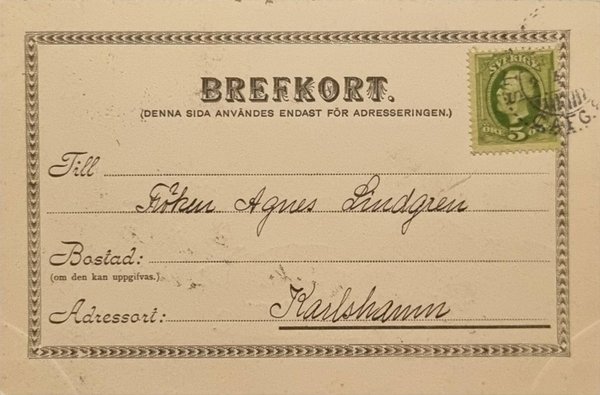 BREFKORT.
(DENNA SIDA ANVÄNDES ENDAST FÖR ADRESSERINGEN.)
SVERIGE
ÖRE 5
Till
Fröken Agnes Lindgren
Bostad:
(om den kan uppgifvas.)
Adressort:
Karlshamn